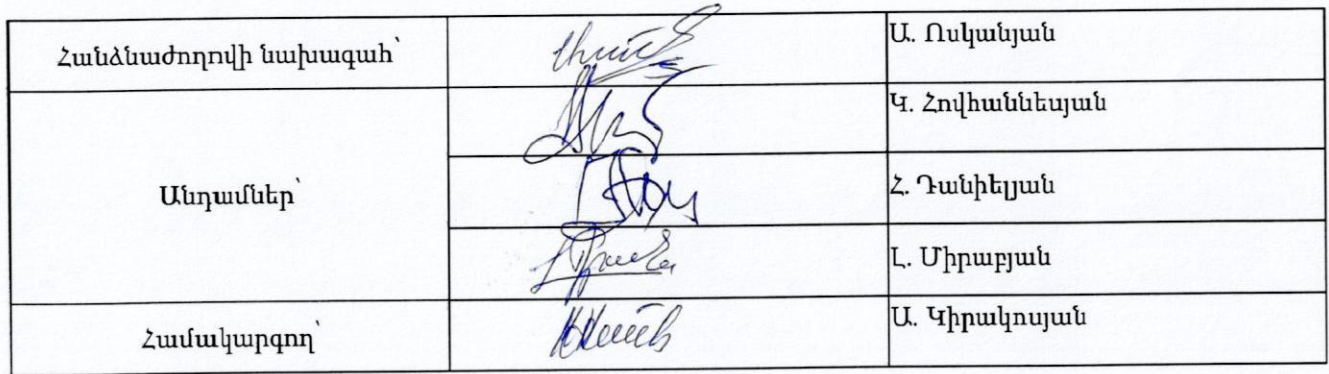 Հանձնաժողովի նախագահ՝
Ա. Ոսկանյան
Անդամներ՝
Կ. Հովհաննեսյան
Հ. Դանիելյան
Լ. Միրաբյան
Համակարգող՝
Ա. Կիրակոսյան